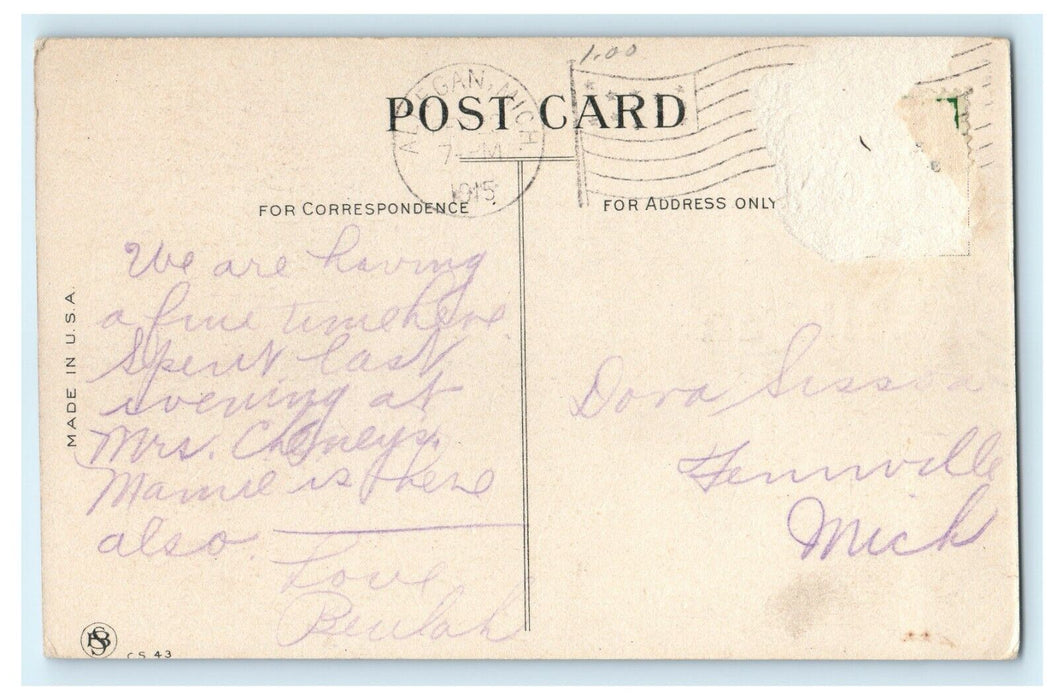 1.00
ALLEGAN, MICH
7-PM
1915
POST CARD
FOR CORRESPONDENCE
FOR ADDRESS ONLY
MADE IN U.S.A.
We are having
a fine time here
Spent last
evening at
Mrs. Cheneys.
Mamie is there
also.
Love
Beulah
Dora
Fennville
Mich
CS 43